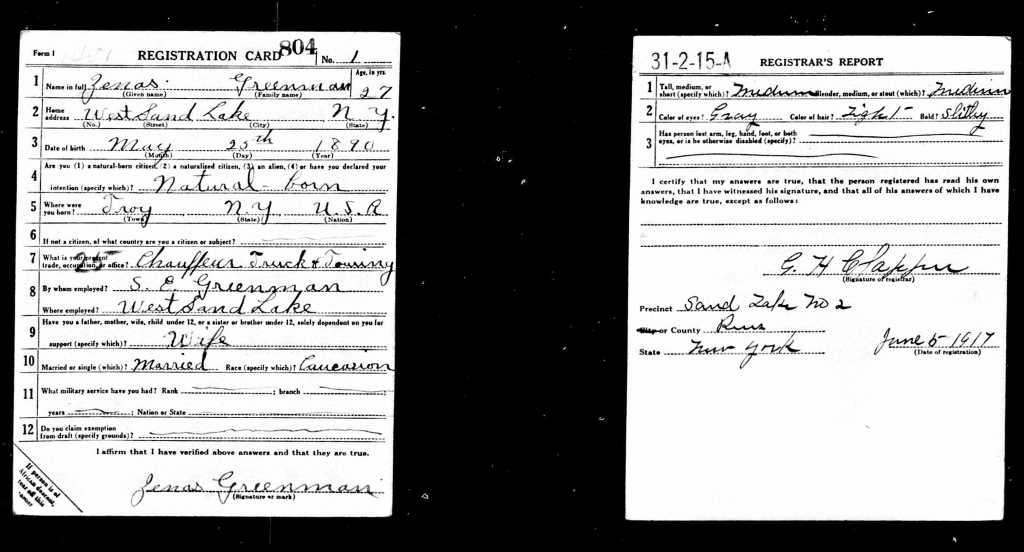 Form 1
REGISTRATION CARD
804
No. 1
1 Name in full Jenas Greenman
(Given name) (Family name)
Age, in yrs.
27
2 Home address West Sand Lake N. Y.
(No.) (Street) (City) (State)
3 Date of birth May 25th 1890
(Month) (Day) (Year)
4 Are you (1) a natural-born citizen, (2) a naturalized citizen, (3) an alien, (4) or have you declared your
intention (specify which)? Natural-born
5 Where were you born? Troy N.Y U.S.A
(Town) (State) (Nation)
6 If not a citizen, of what country are you a citizen or subject?
7 What is your present
trade, occupation, or office? 25 Chauffeur Truck & Touring
8 By whom employed? S. E. Greenman
Where employed? West Sand Lake
9 Have you a father, mother, wife, child under 12, or a sister or brother under 12, solely dependent on you for
support (specify which)? Wife
10 Married or single (which)? Married Race (specify which)? Caucasion
11 What military service have you had? Rank ; branch
years ; Nation or State
12 Do you claim exemption
from draft (specify grounds)?
I affirm that I have verified above answers and that they are true.
Jenas Greenman
(Signature or mark)
If person is of
African descent,
off this
corner
31-2-15-A
REGISTRAR'S REPORT
1 Tall, medium, or
short (specify which)? Medium Slender, medium, or stout (which)? Medium
2 Color of eyes? Gray Color of hair? Light Bald? Slitly
3 Has person lost arm, leg, hand, foot, or both
eyes, or is he otherwise disabled (specify)?
I certify that my answers are true, that the person registered has read his own
answers, that I have witnessed his signature, and that all of his answers of which I have
knowledge are true, except as follows:
G. H Clapper
(Signature of registrar)
Precinct Sand Lake No 2
City or County Renss
State New York
June 5-1917
(Date of registration)